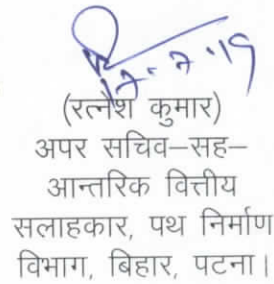 12-7-19
(रत्नेश कुमार)
अपर सचिव–सह–
आन्तरिक वित्तीय
सलाहकार, पथ निर्माण
विभाग, बिहार, पटना।